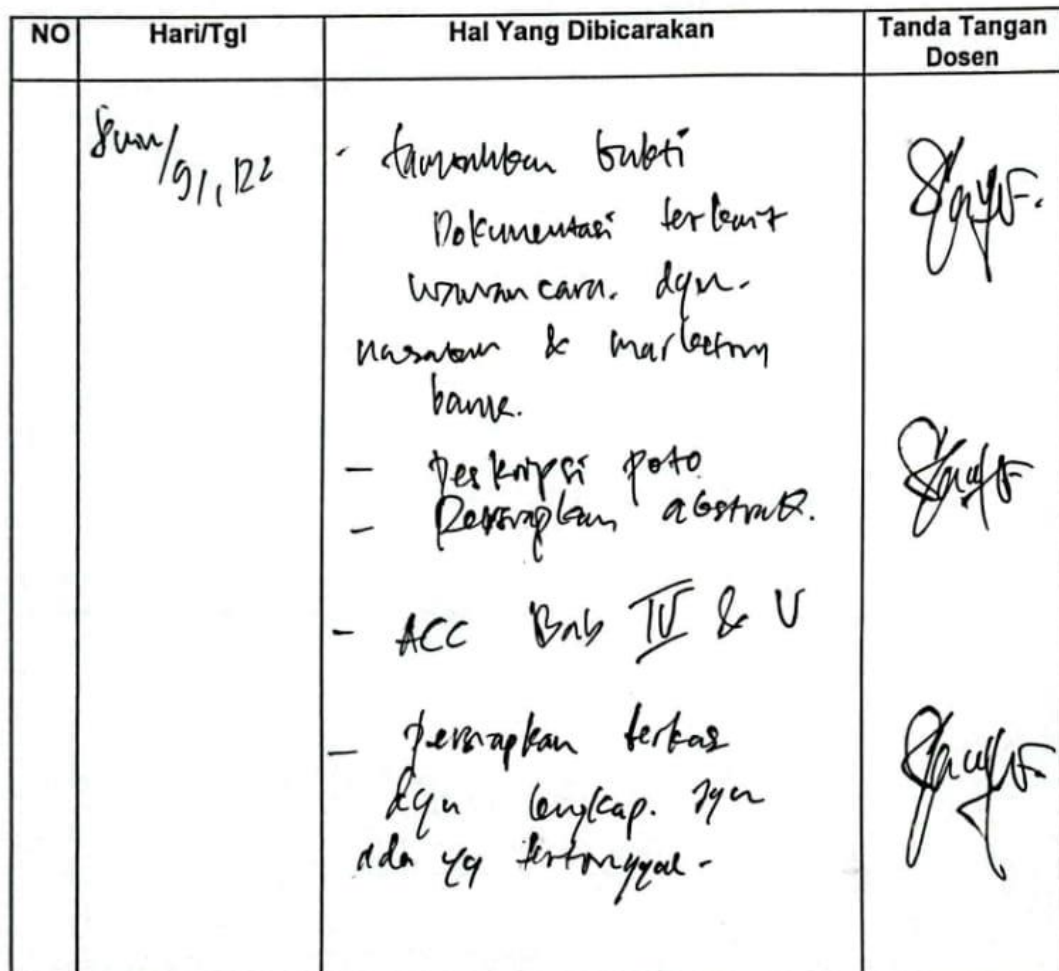 NO Hari/Tgl Hal Yang Dibicarakan Tanda Tangan Dosen
Senin/
- tambahkan bukti
Dokumentasi terkait
wawancara. dgn.
nasabah & marketing
bank.
- Deskripsi poto
- Persiapkan abstrak.
- ACC Bab IV & V
- persiapkan berkas
dgn lengkap. Jgn
ada yg tertinggal-